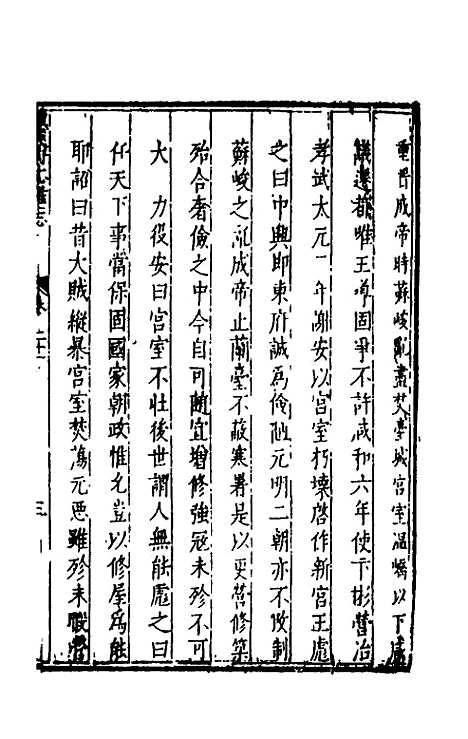 重晉成帝時蘇峻亂盡焚臺城宮室溫嶠以下咸
議遷都唯王導固爭不許咸和六年使卞彬營治
孝武太元二年謝安以宮室朽壞啓作新宮王處
之曰中興即東府誠為儉陋元明二朝亦不改制
蘇峻之亂成帝止蘭臺不蔽寒暑是以更營修築
殆合奢儉之中今自可隨宜增修強冦未殄不可
大 力役安曰宮室不壯後世謂人無能處之曰
任天下事當保固國家朝政惟允豈以修屋為能
耶詔曰昔大賊縱暴宮室焚蕩元惡雖殄未暇營
三